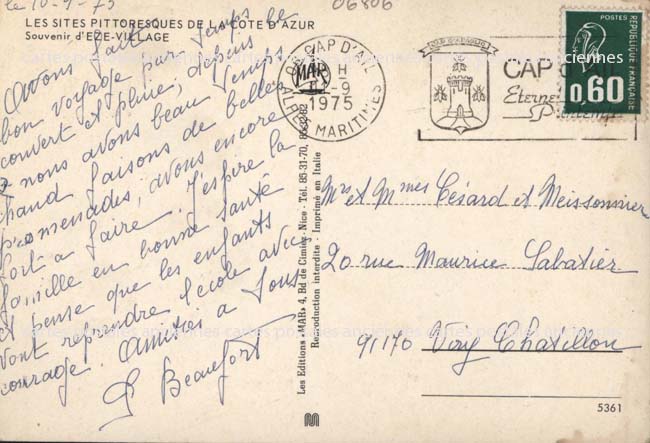 le 10-9-75
06806
LES SITES PITTORESQUES DE LA CÔTE D'AZUR
Souvenir d'EZE-VILLAGE
Avons fait
bon voyage par temps
couvert et pluie, depuis
nous avons beau temps
chaud faisons de belles
promenades, avons encore
fort à faire. J'espère la
famille en bonne santé
et pense que les enfants
vont reprendre l'école avec
courage. Amitiés à tous
Beaufort
CAP D'AIL
H
-9
1975
ALPES MARITIMES
CAP
Eternel
Printemps
POSTES
REPUBLIQUE FRANÇAISE
0,60
Les Editions «MAR» 4, Bd de Cimiez - Nice - Tél. 85-31-70,
Reproduction interdite - Imprimé en Italie
Mrs et Mmes Césard et Meissonnier
20 rue Maurice Sabatier
91170 Viry Chatillon
5361
cartes postales anciennes